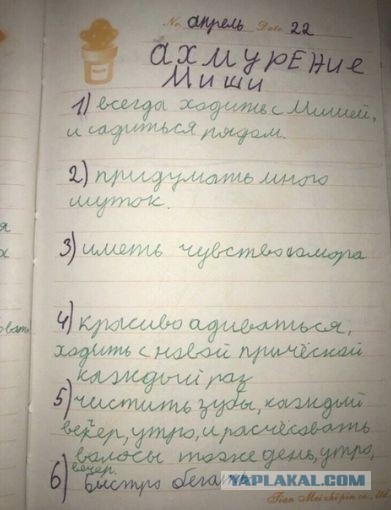 No. апрель Date 22
АХМУРЕНИЕ
МИШИ
1) всегда ходить с Мишей,
и садиться рядом.
2) придумать много
шуток.
3) иметь чувство юмора
4) красиво адиваться,
ходить с новой причёской
каждый раз
5) чистить зубы, каждый
вечер, утро, и расчёсовать
волосы тоже день, утро,
вечер.
6) быстро бегать
YAPLAKAL.COM